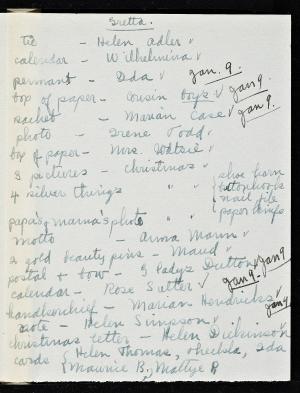 Gretta.
tie - Helen Adler √
calendar - Wilhelmina √
pennant - Dda √ Jan. 9.
box of paper - Cousin √ Jan 9.
sachet - Marian Case √ Jan 9.
photo - Irene Todd √
box of paper - Mrs. √
3 pictures - Christmas √
4 silver things " " { shoe horn
buttonhooks
nail file
paper knife
papa's & mama's photo " √
motto " - Anna Mann √
2 gold beauty pins - Maud √
postal & bow - Gladys Dutton √ Jan 9
calendar - Rose Sutter √ Jan 9.
handkerchief - Marian Hendricks √
note - Helen Simpson √ Jan 9
christmas letter - Helen Dickinson
cards { Helen Thomas, Ida
{ Maurice B., Mattye R